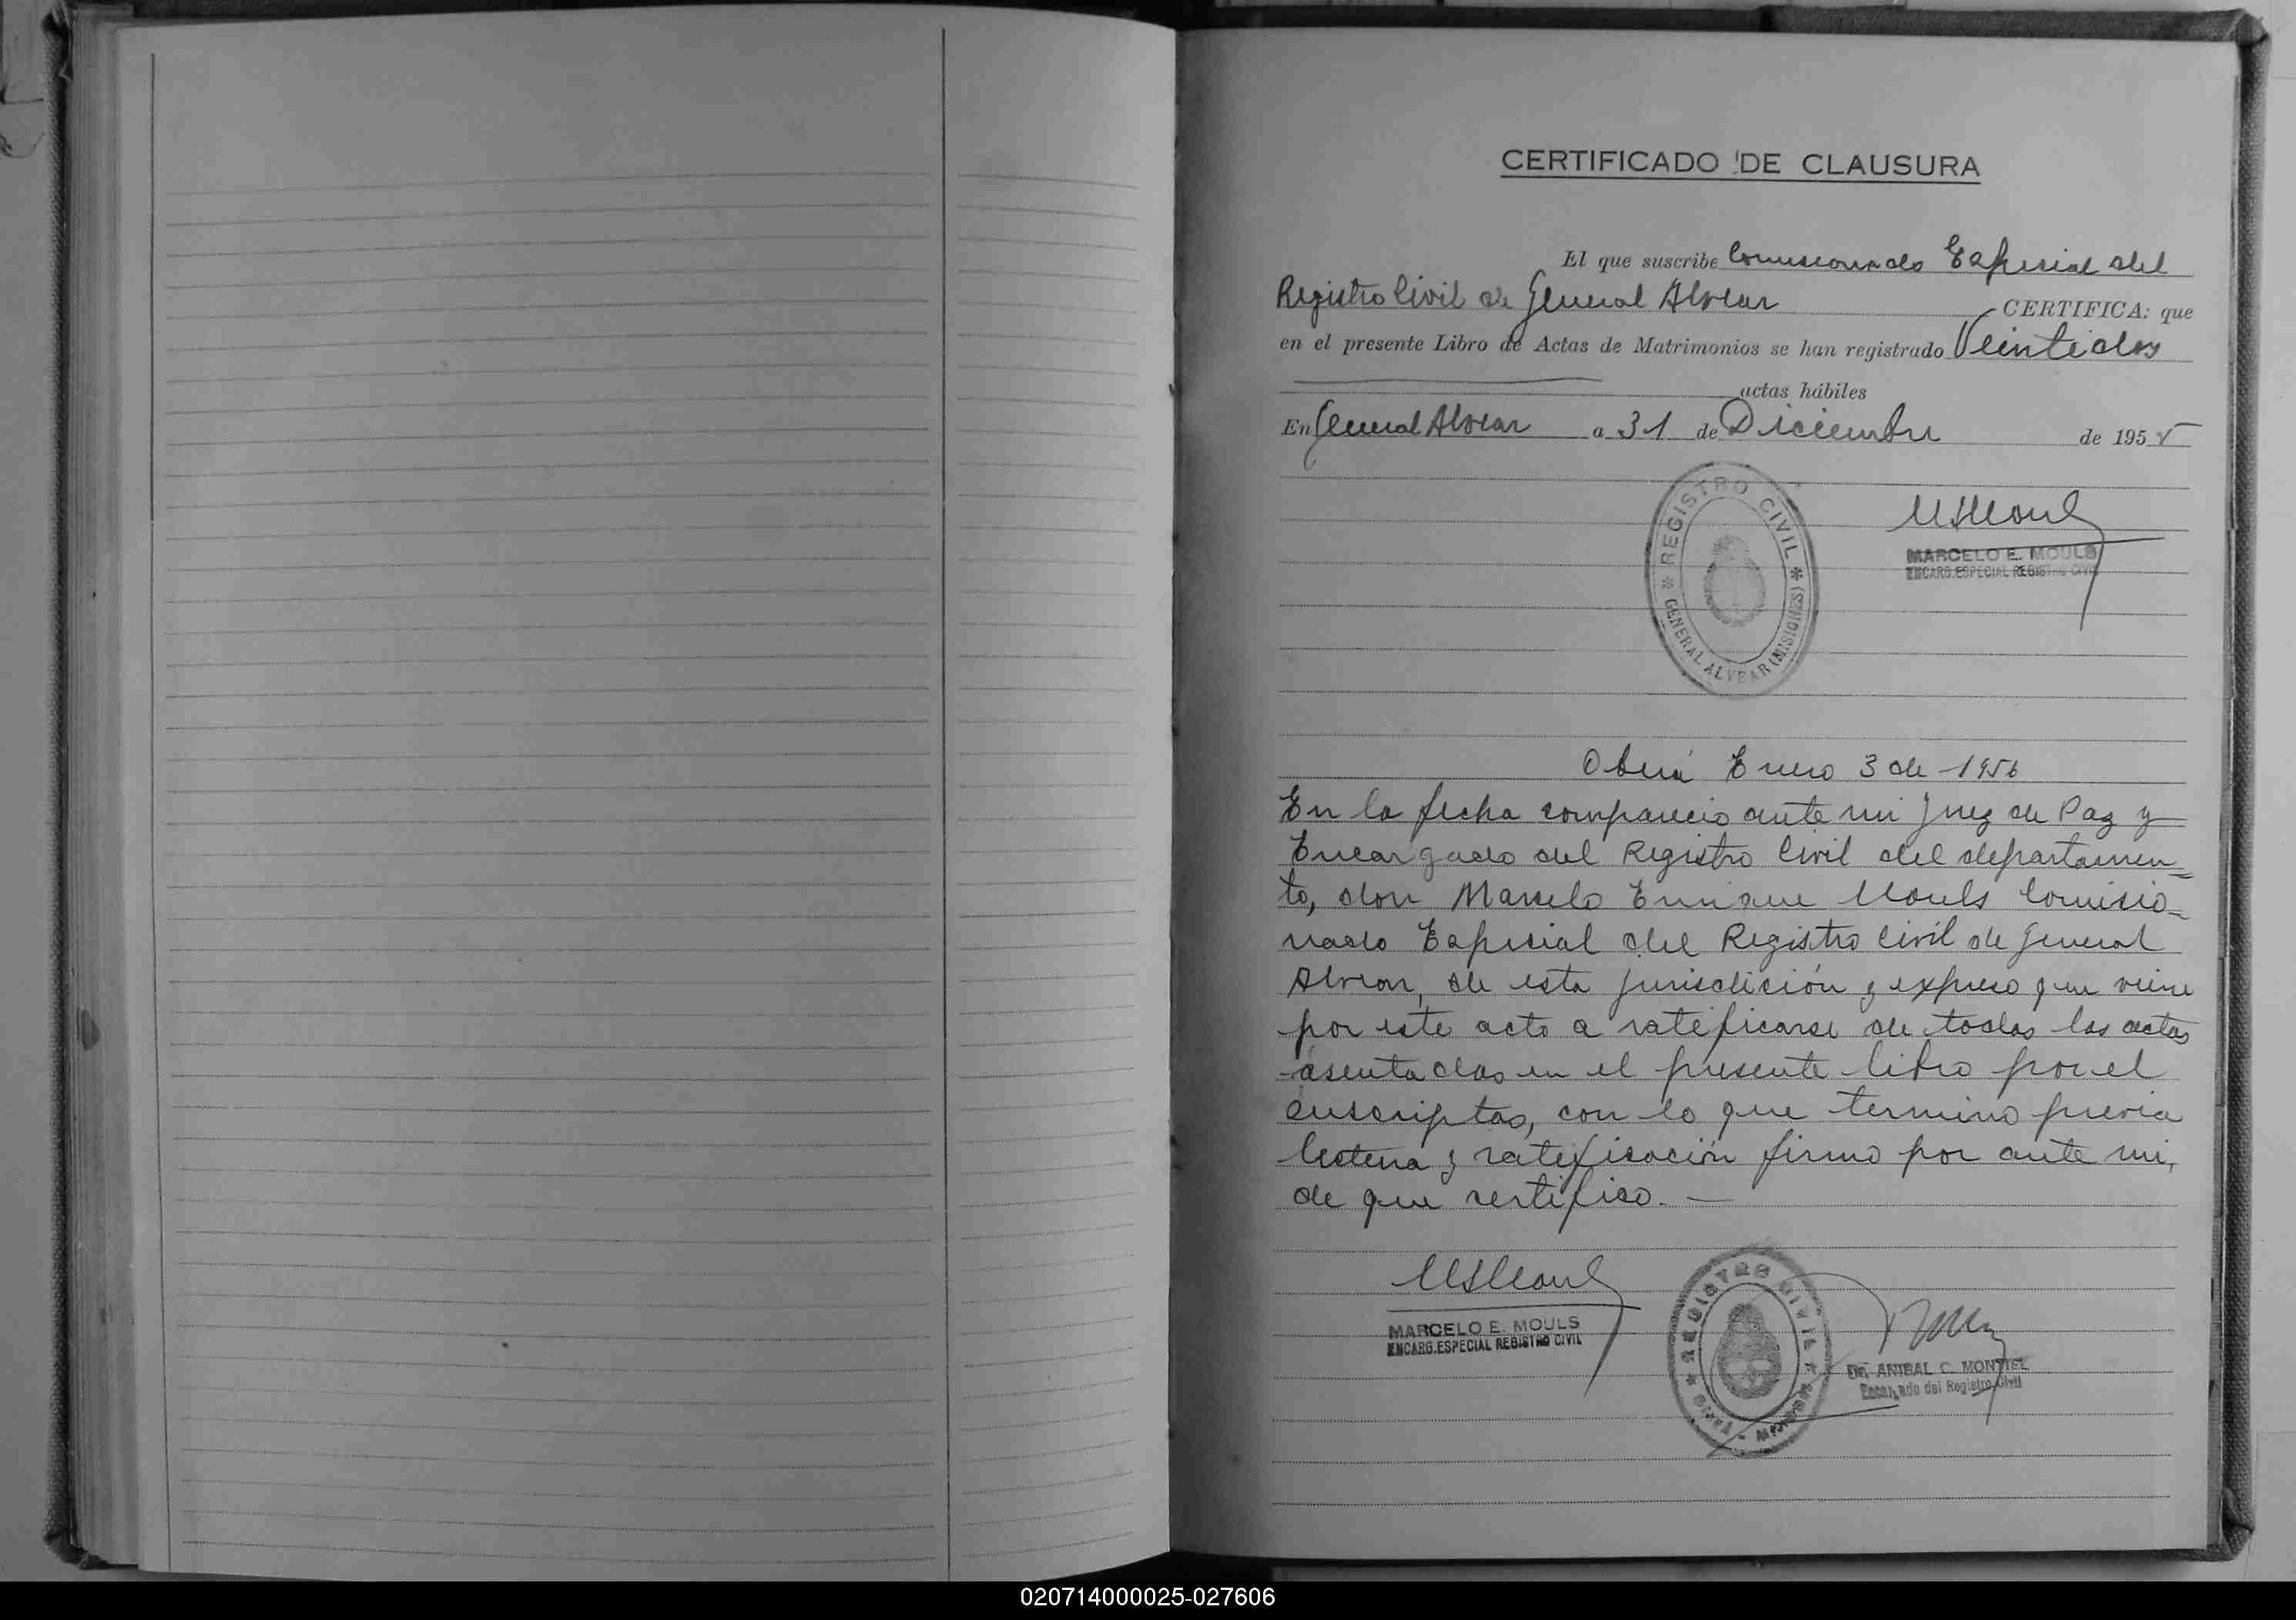 CERTIFICADO DE CLAUSURA
El que suscribe Comisionado Especial del
Registro Civil de General Alvear CERTIFICA: que
en el presente Libro de Actas de Matrimonios se han registrado Veintidos
actas hábiles
En General Alvear a 31 de Diciembre de 1955
REGISTRO CIVIL
GENERAL ALVEAR (MISIONES)
MARCELO E. MOULS
ENCARG. ESPECIAL REGISTRO CIVIL
Oberá Enero 3 de 1956
En la fecha comparecio ante mi Juez de Paz y
Encargado del Registro Civil del departamen=
to, don Marcelo Enrique Mouls Comisio=
nado Especial del Registro Civil de General
Alvear, de esta jurisdición y expreso que viene
por este acto a ratificarse de todas las actas
asentadas en el presente libro por el
suscriptas, con lo que termino previa
lectura y ratificación firmo por ante mi,
de que certifico. —
MARCELO E. MOULS
ENCARG. ESPECIAL REGISTRO CIVIL
REGISTRO CIVIL
MISIONES
Dr. ANIBAL C. MONTIEL
Encargado del Registro Civil
020714000025-027606